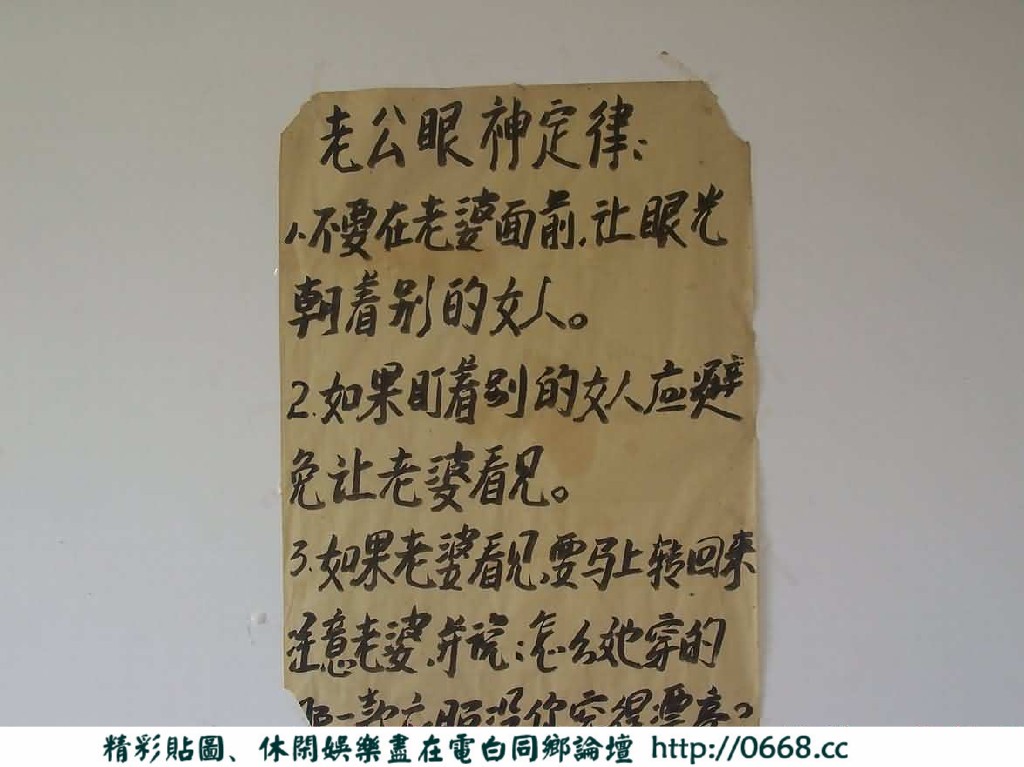 老公眼神定律:
1、不要在老婆面前,让眼光
朝着别的女人。
2.如果盯着别的女人应避
免让老婆看见。
3.如果老婆看见,要马上转回来
注意老婆,并说:怎么她穿的
那一款衣服没你穿得漂亮?
精彩貼圖、休閑娛樂盡在電白同鄉論壇 http://0668.cc